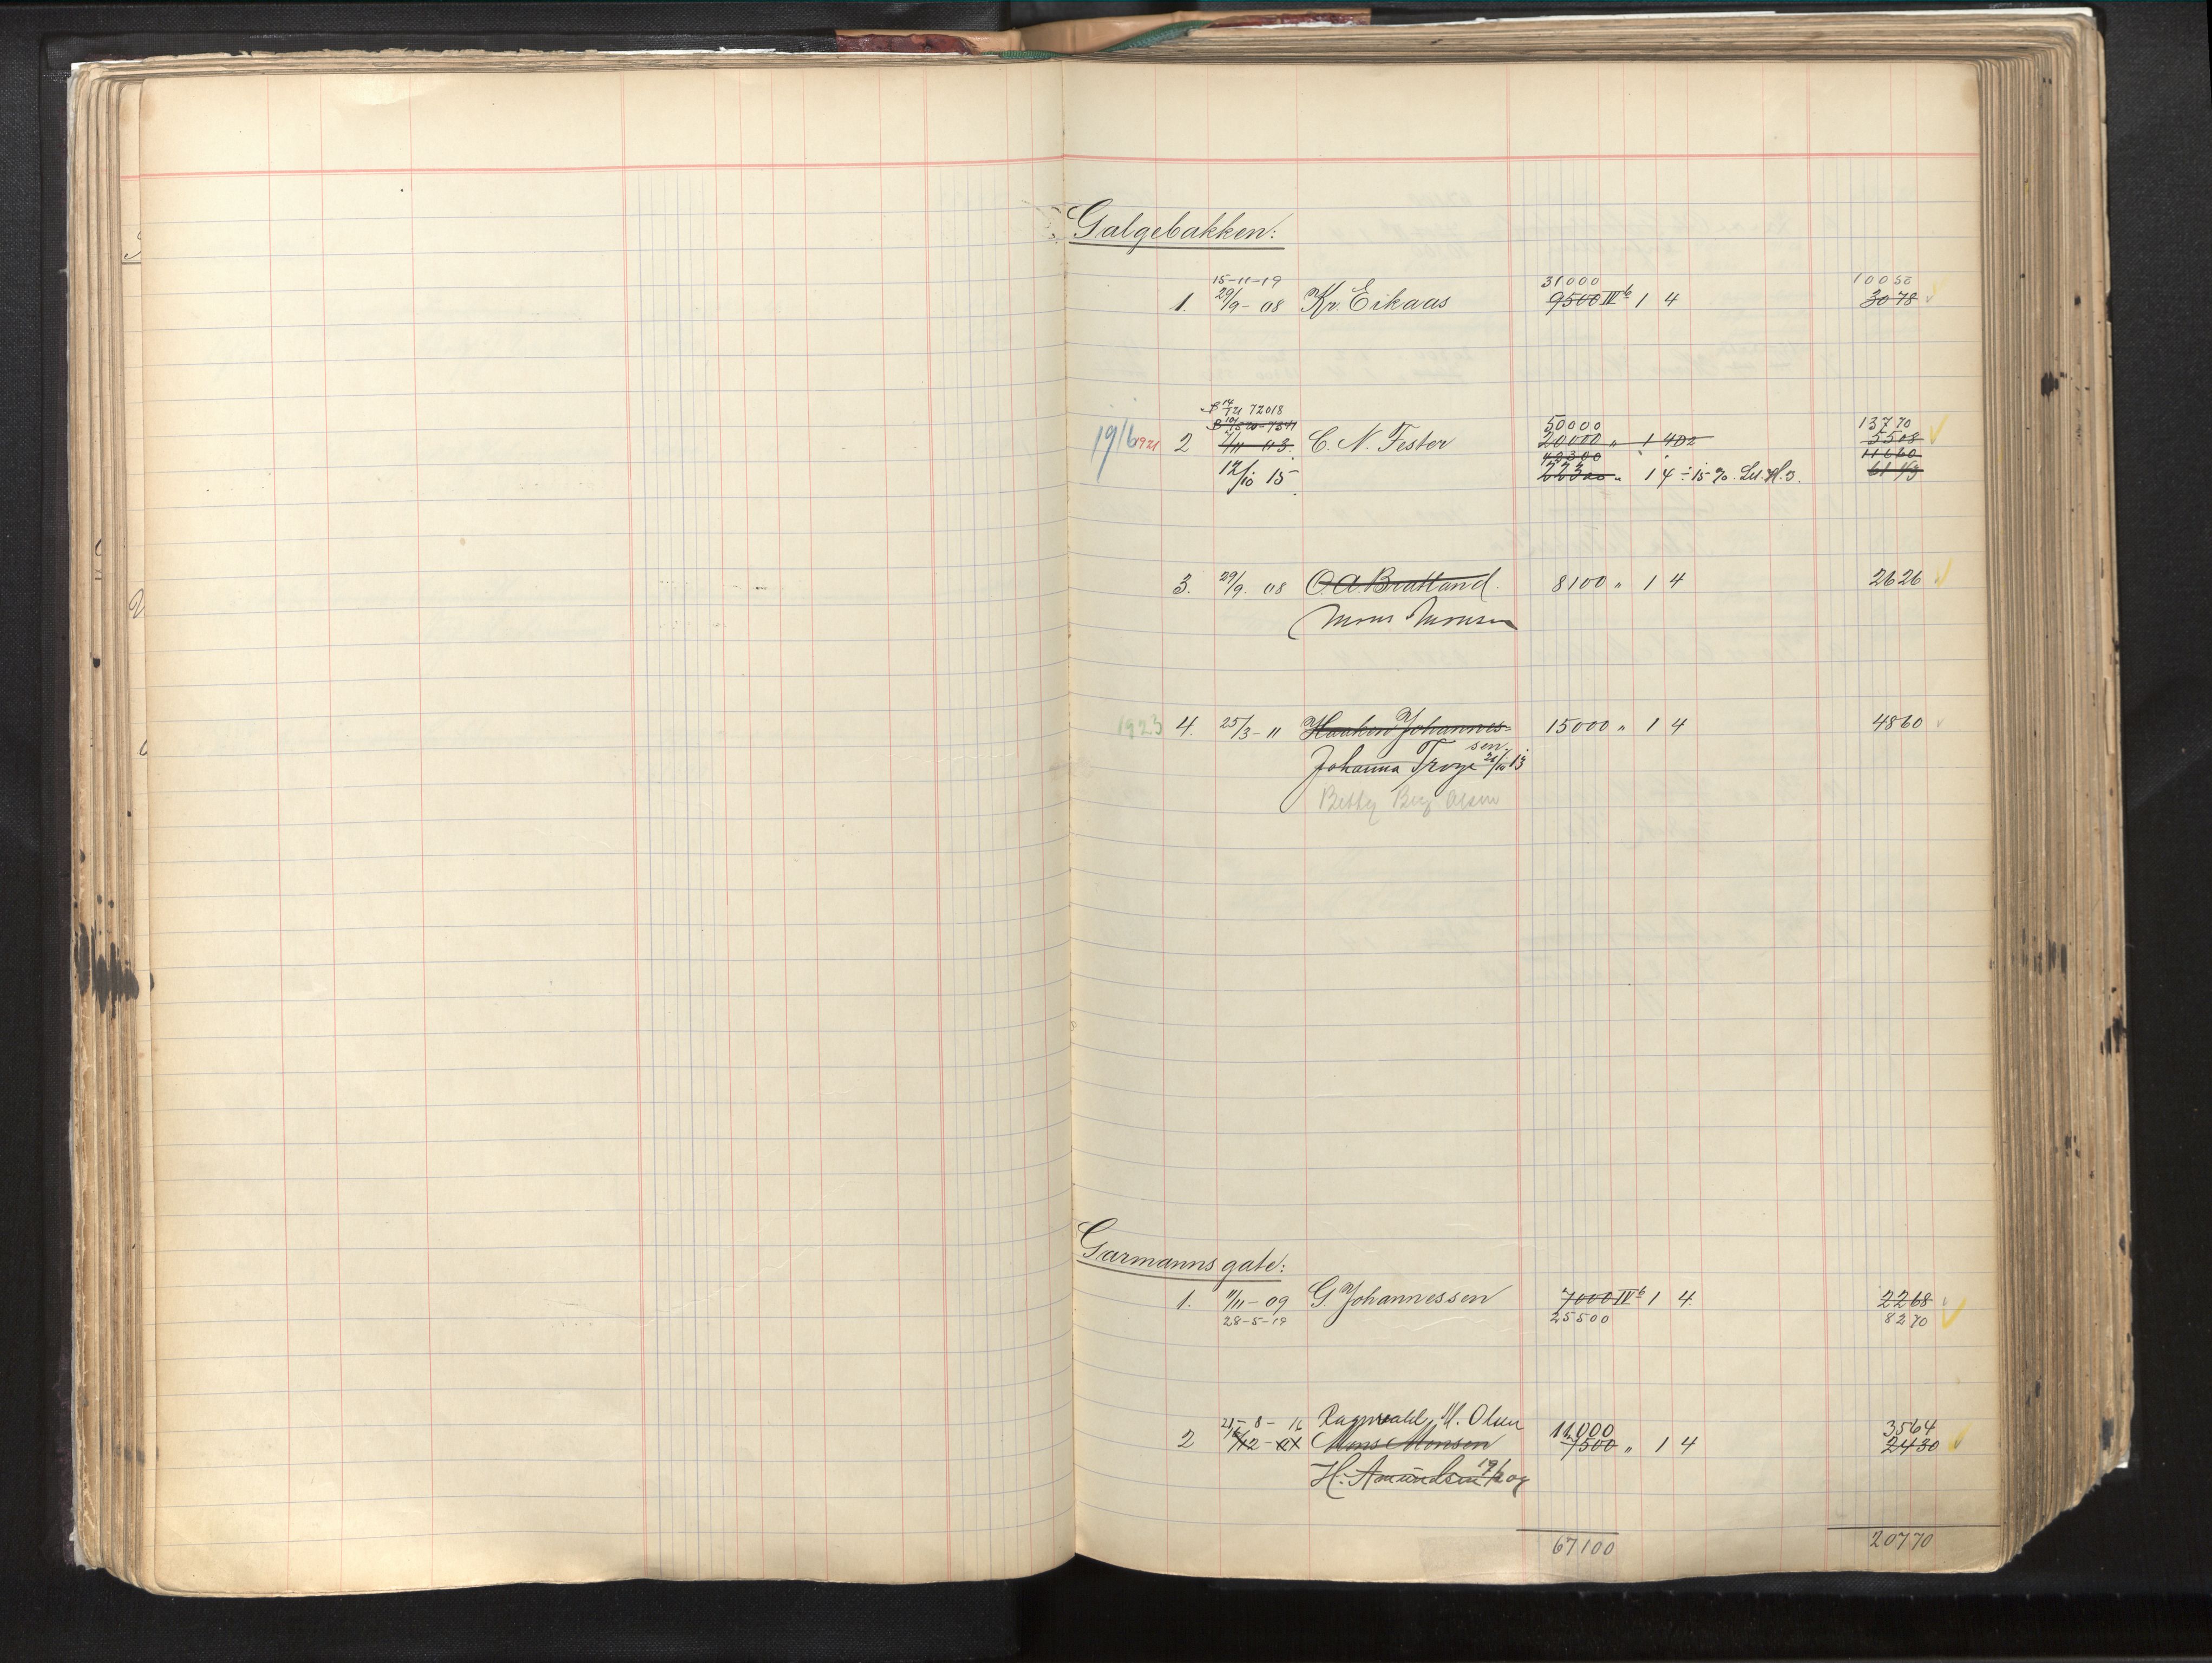 Galgebakken:
15-11-19 31000 10052
1. 29/9-08 Kr. Eikaas 9500 IVb 1 4 3078
14/1 21 72018 50000 13770
19/6 1921 2 7/11 03. C. N. Fester 20000 " 1 4 5508
43300 11660
12/10 15 22300 " 1 4 ÷ 15 %
3. 29/9. 08 O. A. Brattand. 8100 " 1 4 2626
Mons Monsen
1923 4. 25/3-11 Haakon Johannes- 15000 " 1 4 4860
sen.
Johanna Troye 13
Betty Olsen
Garmannsgate:
1. 11/11-09 G. Johannessen 7000 IVb 1 4. 2268
28-5-19 25500 8270
21-8-16 Ragnvald M. Olsen 11000 3564
2 Mons Monsen 7500 " 1 4 2430
H. Amundsen 09
67100 20770